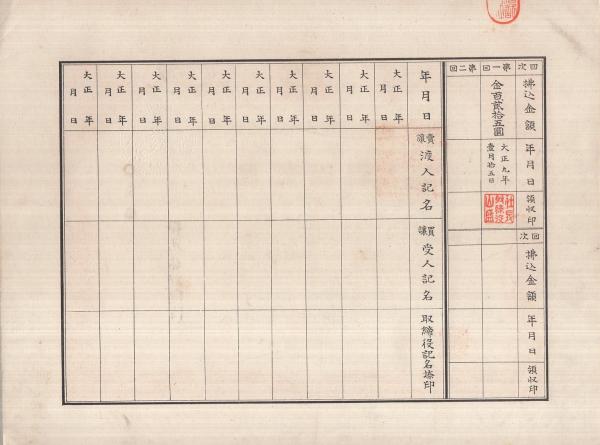 回次
拂込金額
年月日
領收印
第一回
金百貳拾五圓
大正九年
壹月拾五日
第二回
回次
拂込金額
年月日
領收印
年月日
賣讓渡人記名
買讓受人記名
取締役記名捺印
大正 年
月 日
大正 年
月 日
大正 年
月 日
大正 年
月 日
大正 年
月 日
大正 年
月 日
大正 年
月 日
大正 年
月 日
大正 年
月 日